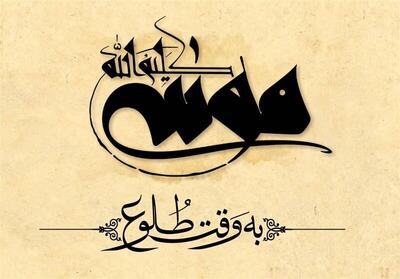 موسی کلیم الله
به وقت طلوع